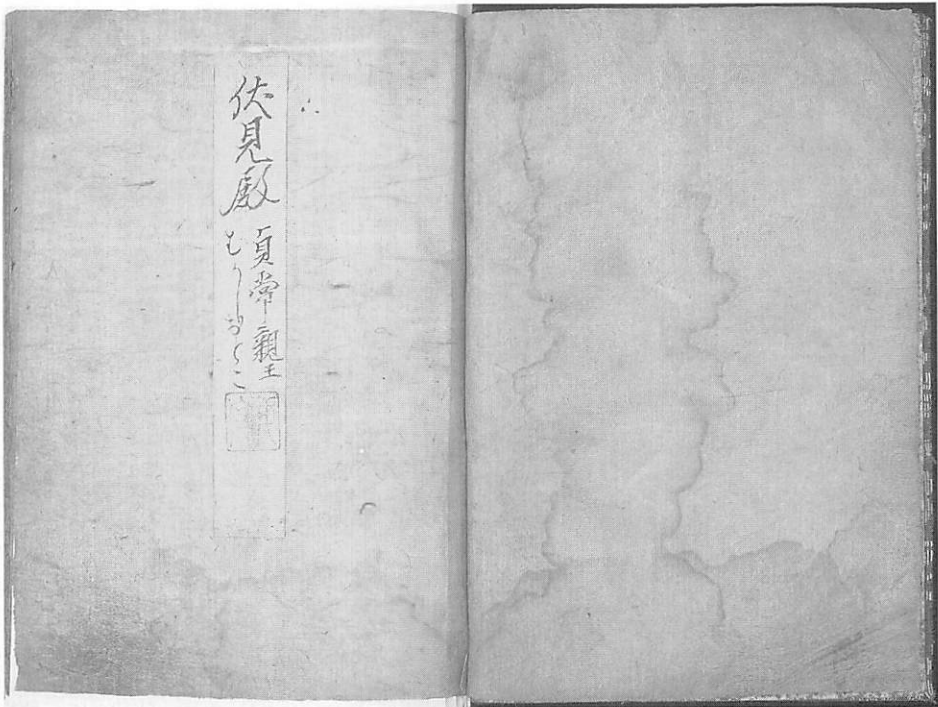 伏見殿
貞常親王
むかしおとこ